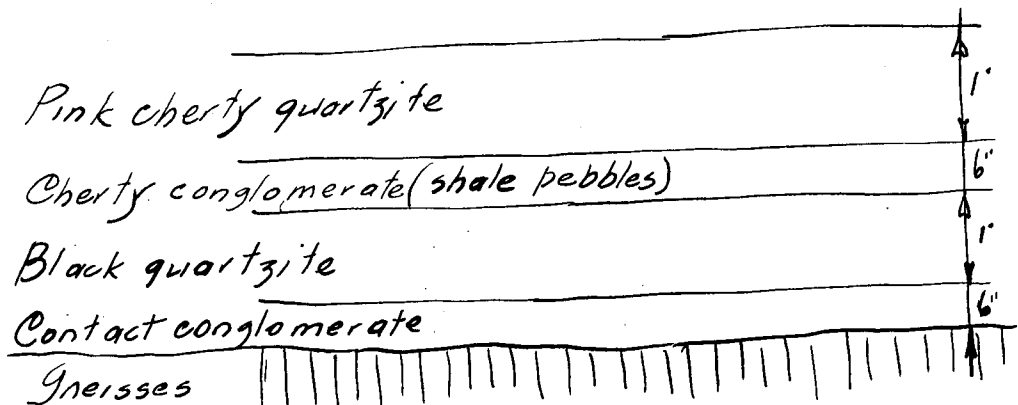 1'
Pink cherty quartzite
6"
Cherty conglomerate (shale pebbles)
1'
Black quartzite
6"
Contact conglomerate
Gneisses